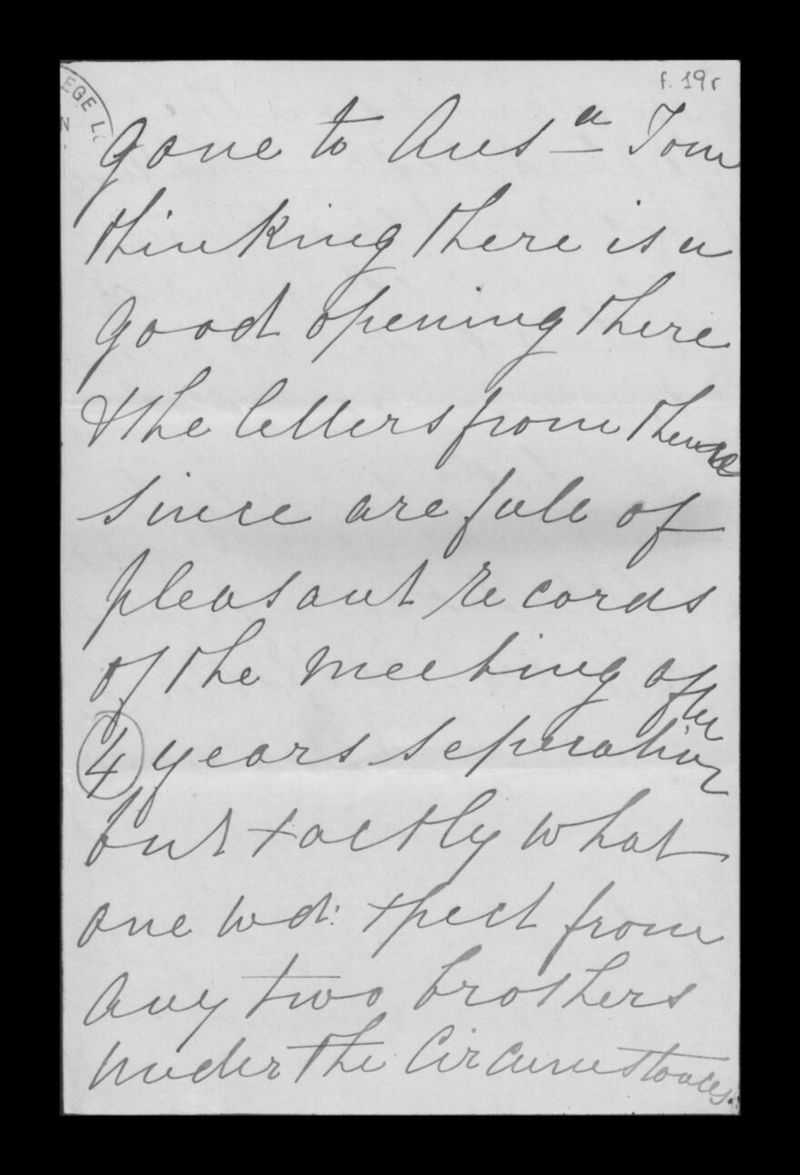 f. 19r
EGE L
N
gone to Aus^a Tom
thinking there is a
good opening there
& the letters from thence
since are full of
pleasant records
of the meeting after
4 years seperation
but xactly what
one wd: xpect from
any two brothers
under the circumstances.